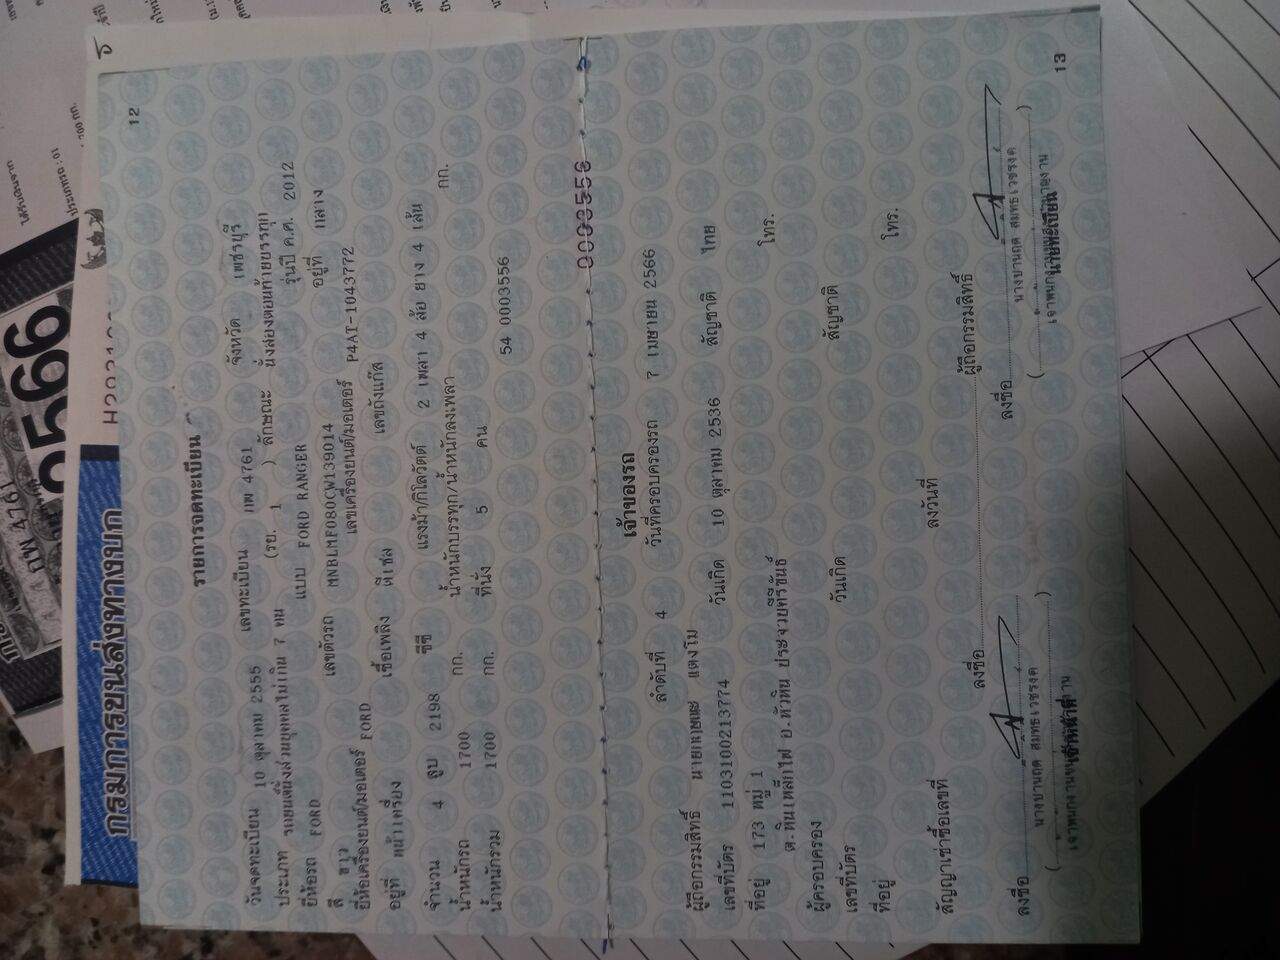 กรมการขนส่งทางบก
2566
กพ 4761
12
รายการจดทะเบียน
วันจดทะเบียน 10 ตุลาคม 2555 เลขทะเบียน กพ 4761 จังหวัด เพชรบุรี
ประเภท รถยนต์นั่งส่วนบุคคลไม่เกิน 7 คน (รย. 1 ) ลักษณะ นั่งสองตอนท้ายบรรทุก
ยี่ห้อรถ FORD แบบ FORD RANGER รุ่นปี ค.ศ. 2012
สี ขาว เลขตัวรถ MNBLMF080CW139014 อยู่ที่ กลาง
ยี่ห้อเครื่องยนต์/มอเตอร์ FORD เลขเครื่องยนต์/มอเตอร์ P4AT-1043772
อยู่ที่ หน้าเครื่อง เชื้อเพลิง ดีเซล เลขถังแก๊ส
จำนวน 4 สูบ 2198 ซีซี แรงม้า/กิโลวัตต์ 2 เพลา 4 ล้อ ยาง 4 เส้น
น้ำหนักรถ 1700 กก. น้ำหนักบรรทุก/น้ำหนักลงเพลา กก.
น้ำหนักรวม 1700 กก. ที่นั่ง 5 คน
54 0003556
0003556
เจ้าของรถ
ลำดับที่ 4 วันที่ครอบครองรถ 7 เมษายน 2566
ผู้ถือกรรมสิทธิ์ แตงโม
เลขที่บัตร 1103100213774 วันเกิด 10 ตุลาคม 2536 สัญชาติ ไทย
ที่อยู่ 173 หมู่ 1
ต.หินเหล็กไฟ อ.หัวหิน ประจวบคีรีขันธ์ โทร.
ผู้ครอบครอง
เลขที่บัตร วันเกิด สัญชาติ
ที่อยู่ โทร.
สัญญาเช่าซื้อเลขที่ ลงวันที่
ลงชื่อ ผู้ถือกรรมสิทธิ์
ลงชื่อ ลงชื่อ
เจ้าหน้าที่ นายทะเบียน
13